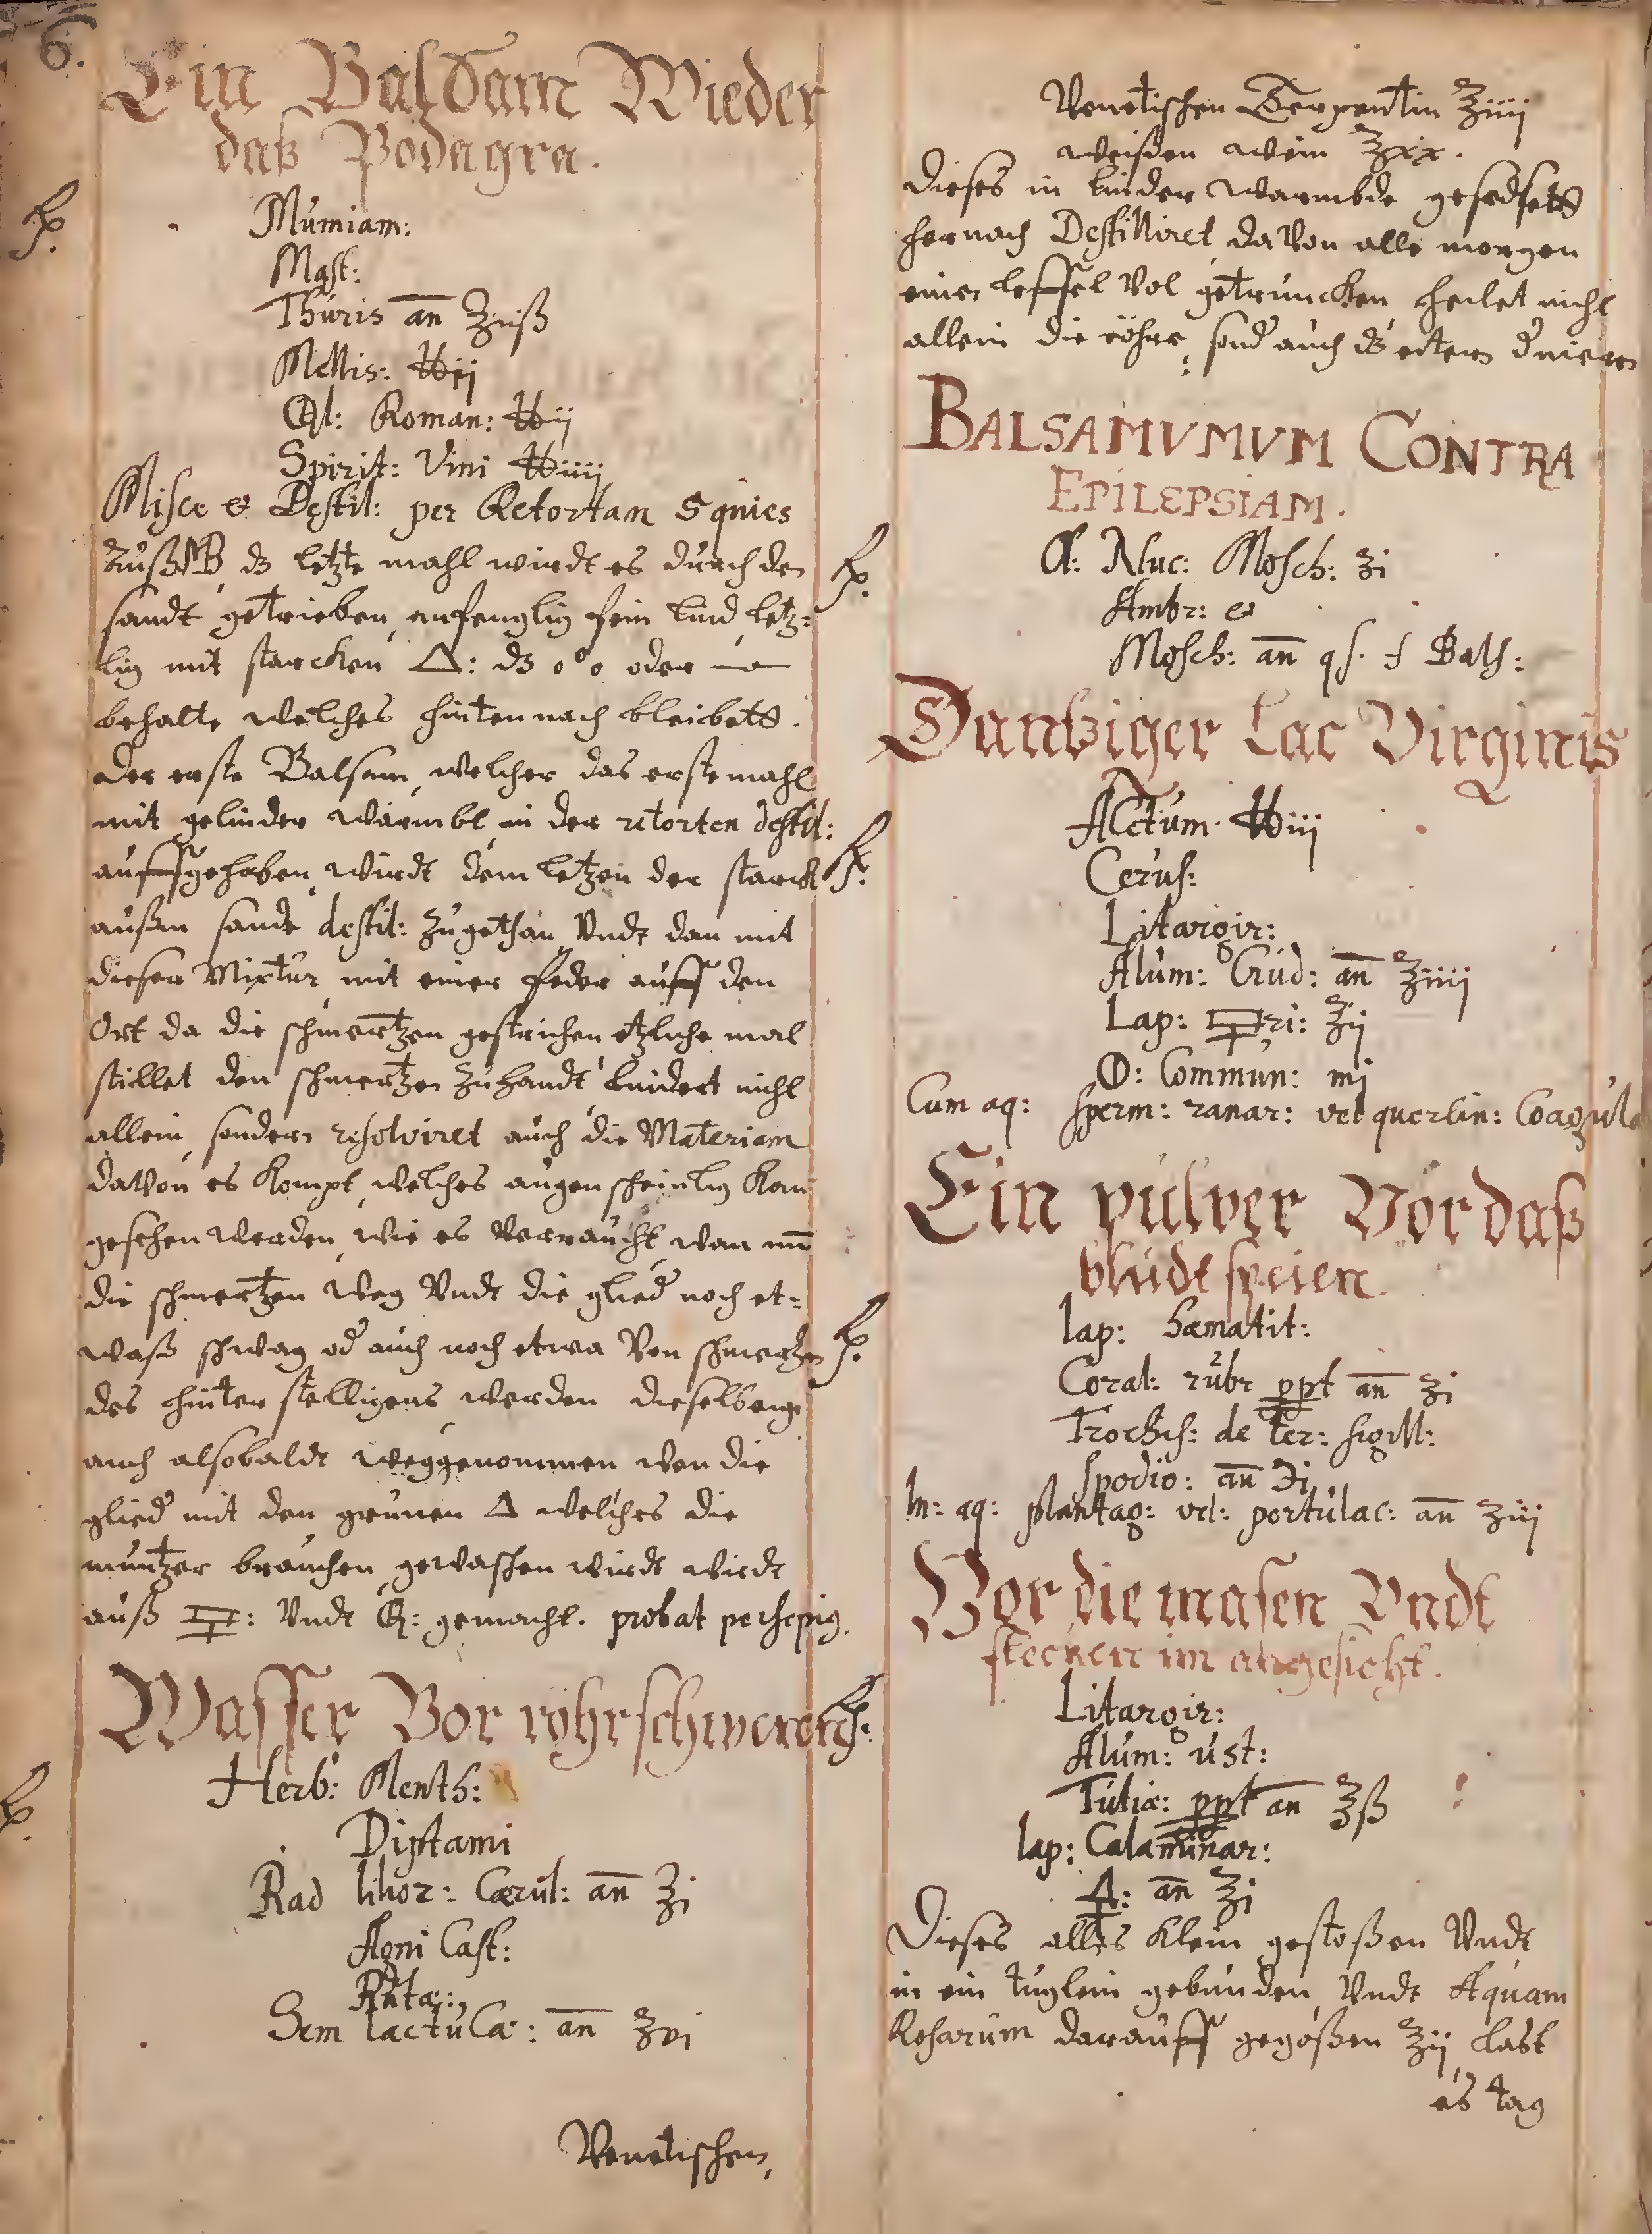 6.
Ein Balsam Wieder
daß Podagra.
Mumiam:
Mast:
Thuris an ℥iiß
Mellis: ℔ij
Ol: Roman: ℔ij
Spirit: Vini ℔iiij
Misce & Destil: per Retortam 5 quies
dz letzte mahl wirdt es durch den
sandt getrieben, anfenglig fein lind letz=
lig mit starcken △: dz o°o oder
behalte welches hinten nach bleibett.
Der erste Balsam, welcher das erste mahl
mit gelinder warmbt in der retorten destil:
auffgehaben wirdt dem letzen der starck
außm sande destil: zugethan Vndt dan mit
dieser Mixtur mit einer feder auff den
Ort da die schmertzen gestrichen etzliche mal
stillet den schmertzen zuhandt lindert nicht
allein sondern resolviret auch die Materiam
davon es kompt, welches augenscheinlig kan
gesehen werden, wie es verraucht, wan nun
die schmertzen weg Vndt die glied noch et=
waß schwag od auch noch etwa Von schmertzen
des hinterstelligens werden dieselbenge
auch alsobaldt weggenommen wen die
glied mit den grunen △ welches die
muntzer brauchen, gewaschen wirdt wirdt
auß Vndt gemacht. probat persepig.
Wasser Vor rohr schweren
Herb: Menth:
Diptami
Rad lilior: Cærul: an ℥i
Agni Cast:
Rutæ:
Sem lactucæ: an ℥vi
Venetischen
Venetischen Terpentin ℥iiij
weißen wein ℥xx.
Dieses in linder warmbde gesedsett
hernach Destilliret, davon alle morgen
einen leffel Vol getruncken, heilet nicht
allein die röhre, sond auch dz eitern d nieren
BALSAMVMVM CONTRA
EPILEPSIAM.
Ol: Nuc: Mosch: ʒi
Ambr: &
Mosch: an qs. f Bals:
Dantziger Lac Virginis
Acetum ℔iij
Cerus:
Litargir:
Alum: Crud: an ℥iiij
Lap: ri: ℥ij
Commun: mj
Cum aq: sperm: ranar: vel querlin: Coagula
Ein pulver Vor daß
bludt speien.
lap: hæmatit:
Coral: rubr ppt an ʒi
Trochis: de ter: sigill:
spodio: an ℈i
In: aq: plantag: vel: portulac: an ʒiij
Vor die masen Vndt
flecken im angesicht.
Litargir:
Alum: ust:
Tutiæ: ppt an ℥ß
lap: Calaminar:
🜍: an ℥i
Dieses alles klein gestoßen Vndt
in ein tuglein gebunden, Vndt Aquam
Rosarum darauff gegoßen ℥ij, last
es tag